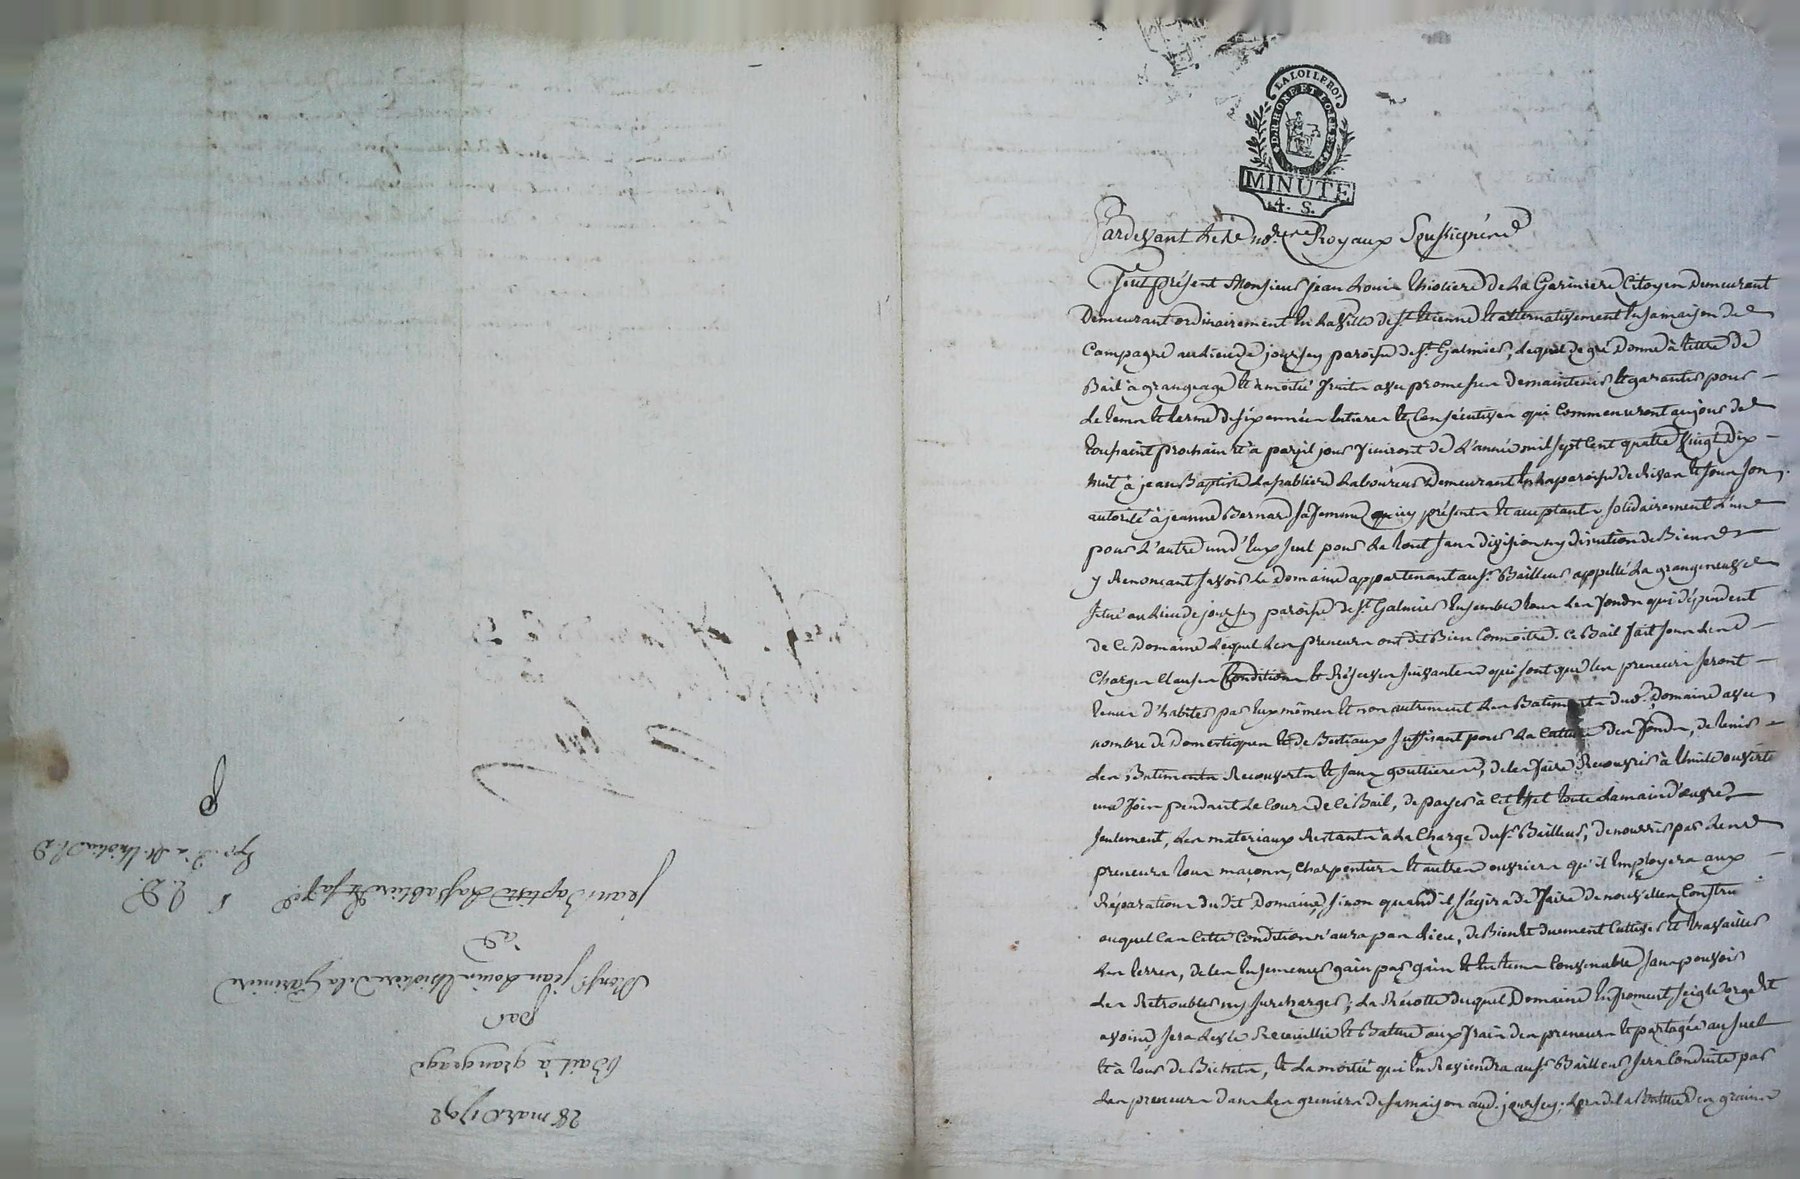 28 mars 1792
Bail à grangeage
par
Monsr. jean Louis thiolière de la Garinière
à
jean Baptiste Lafabliere & sa fe.
LA LOI LE ROI
D. RHONE ET LOIRE
MINUTE
4. S.
Pardevant Les nore. Royaux Soussignérs
fut présent Monsieur jean Louis thioliere De La Gariniere Citoyen Demeurant
Demeurant ordinairement En La Ville de st. Etienne Et alternativement En sa maison de
Campagne au Lieu de joursey paroisse de st. Galmier, Lequel de gré Donne à titre de
Bail à grangeage Et à moitié fruits avec promesses De maintenir Et garantir pour
Le tems Et terme de six années Entieres Et Consécutives qui Commenceront au jour de
toussaint prochain Et à pareil jour finiront de L'année mil sept Cent quatre Vingt Dix
huit à jean Baptiste Lafabliere Laboureur Demeurant En La paroisse de Rivas Et sous son
autorité à jeanne Bernard sa femme qui icy présents Et acceptants solidairement L'un
pour L'autre un d'Eux seul pour Le tout sans Division ny Discution de Biens
y Renonçant savoir Le Domaine appartenant au sr. Bailleur appellé La grangeneuve
situé au Lieu de joursey paroisse de st. Galmier Ensemble tous Les fonds qui dépendent
de Ce Domaine Lequel Les preneurs ont dit Bien Connoitre. Ce Bail fait sous Les
Charges Clauses Conditions Et Réserves suivantes qui sont que Les preneurs seront
tenus d'habiter par Eux mêmes Et non autrement Les Batiments dud. Domaine avec
nombre de Domestiques Et de Bestiaux suffisant pour La Culture des fonds, de tenir
Les Batiments Recouverts Et sans gouttieres, de Les faire Recouvrir à tuile ouverte
une fois pendant Le Cours de Ce Bail, de payer à Cet Effet toute La main d'œuvre
seulement, Les materiaux Restants à La Charge du sr. Bailleur, de nourrir par Les
preneurs tous maçons, Charpentiers Et autres ouvriers qu'il Employera aux
Réparations du dit Domaine, sinon quand il s'agira de faire De nouvelles Constru
auquel Cas Cette Condition n'aura pas Lieu, de Bien Et duement Cultiver Et travailler
Les terres, de Les Ensemencer gain par gain Et En tems Convenable sans pouvoir
Les Retroubler ny surcharger; La Récolte duquel Domaine En froment, seigle orge Et
avoine sera Levée Recueillie Et Battue aux frais des preneurs Et partagée au suel
Et à tour de Bichets, Et La moitié qui En Reviendra au sr. Bailleur sera Conduite par
Les preneurs dans Les greniers de sa maison aud. joursey; Lors de La Battue des grains